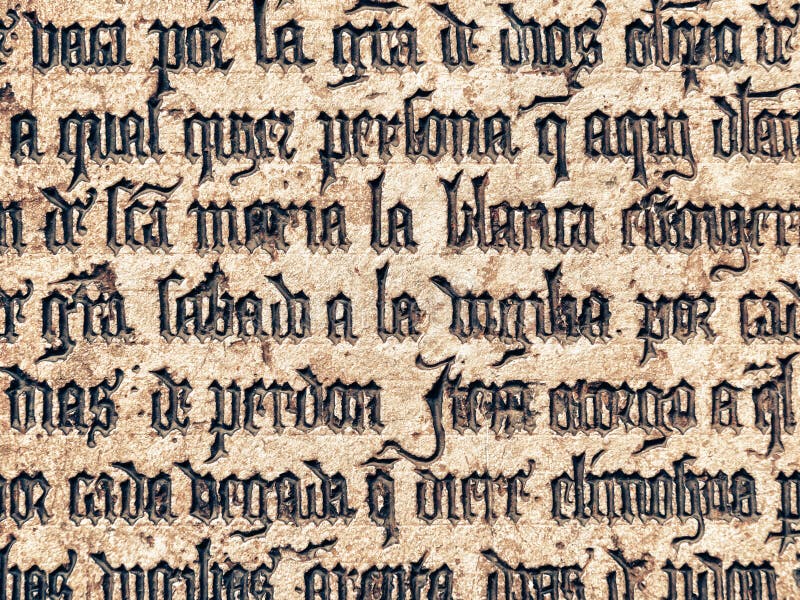 vaca por la gr̃a de dios obispo de
a qual quier persona q̃ aqui
de sc̃a maria la blanca
gr̃a sabado a la por cad
dias de perdon Item otorgo a q̃l
or cada vegada q̃ diere elimosna p
quarenta dias de pdon